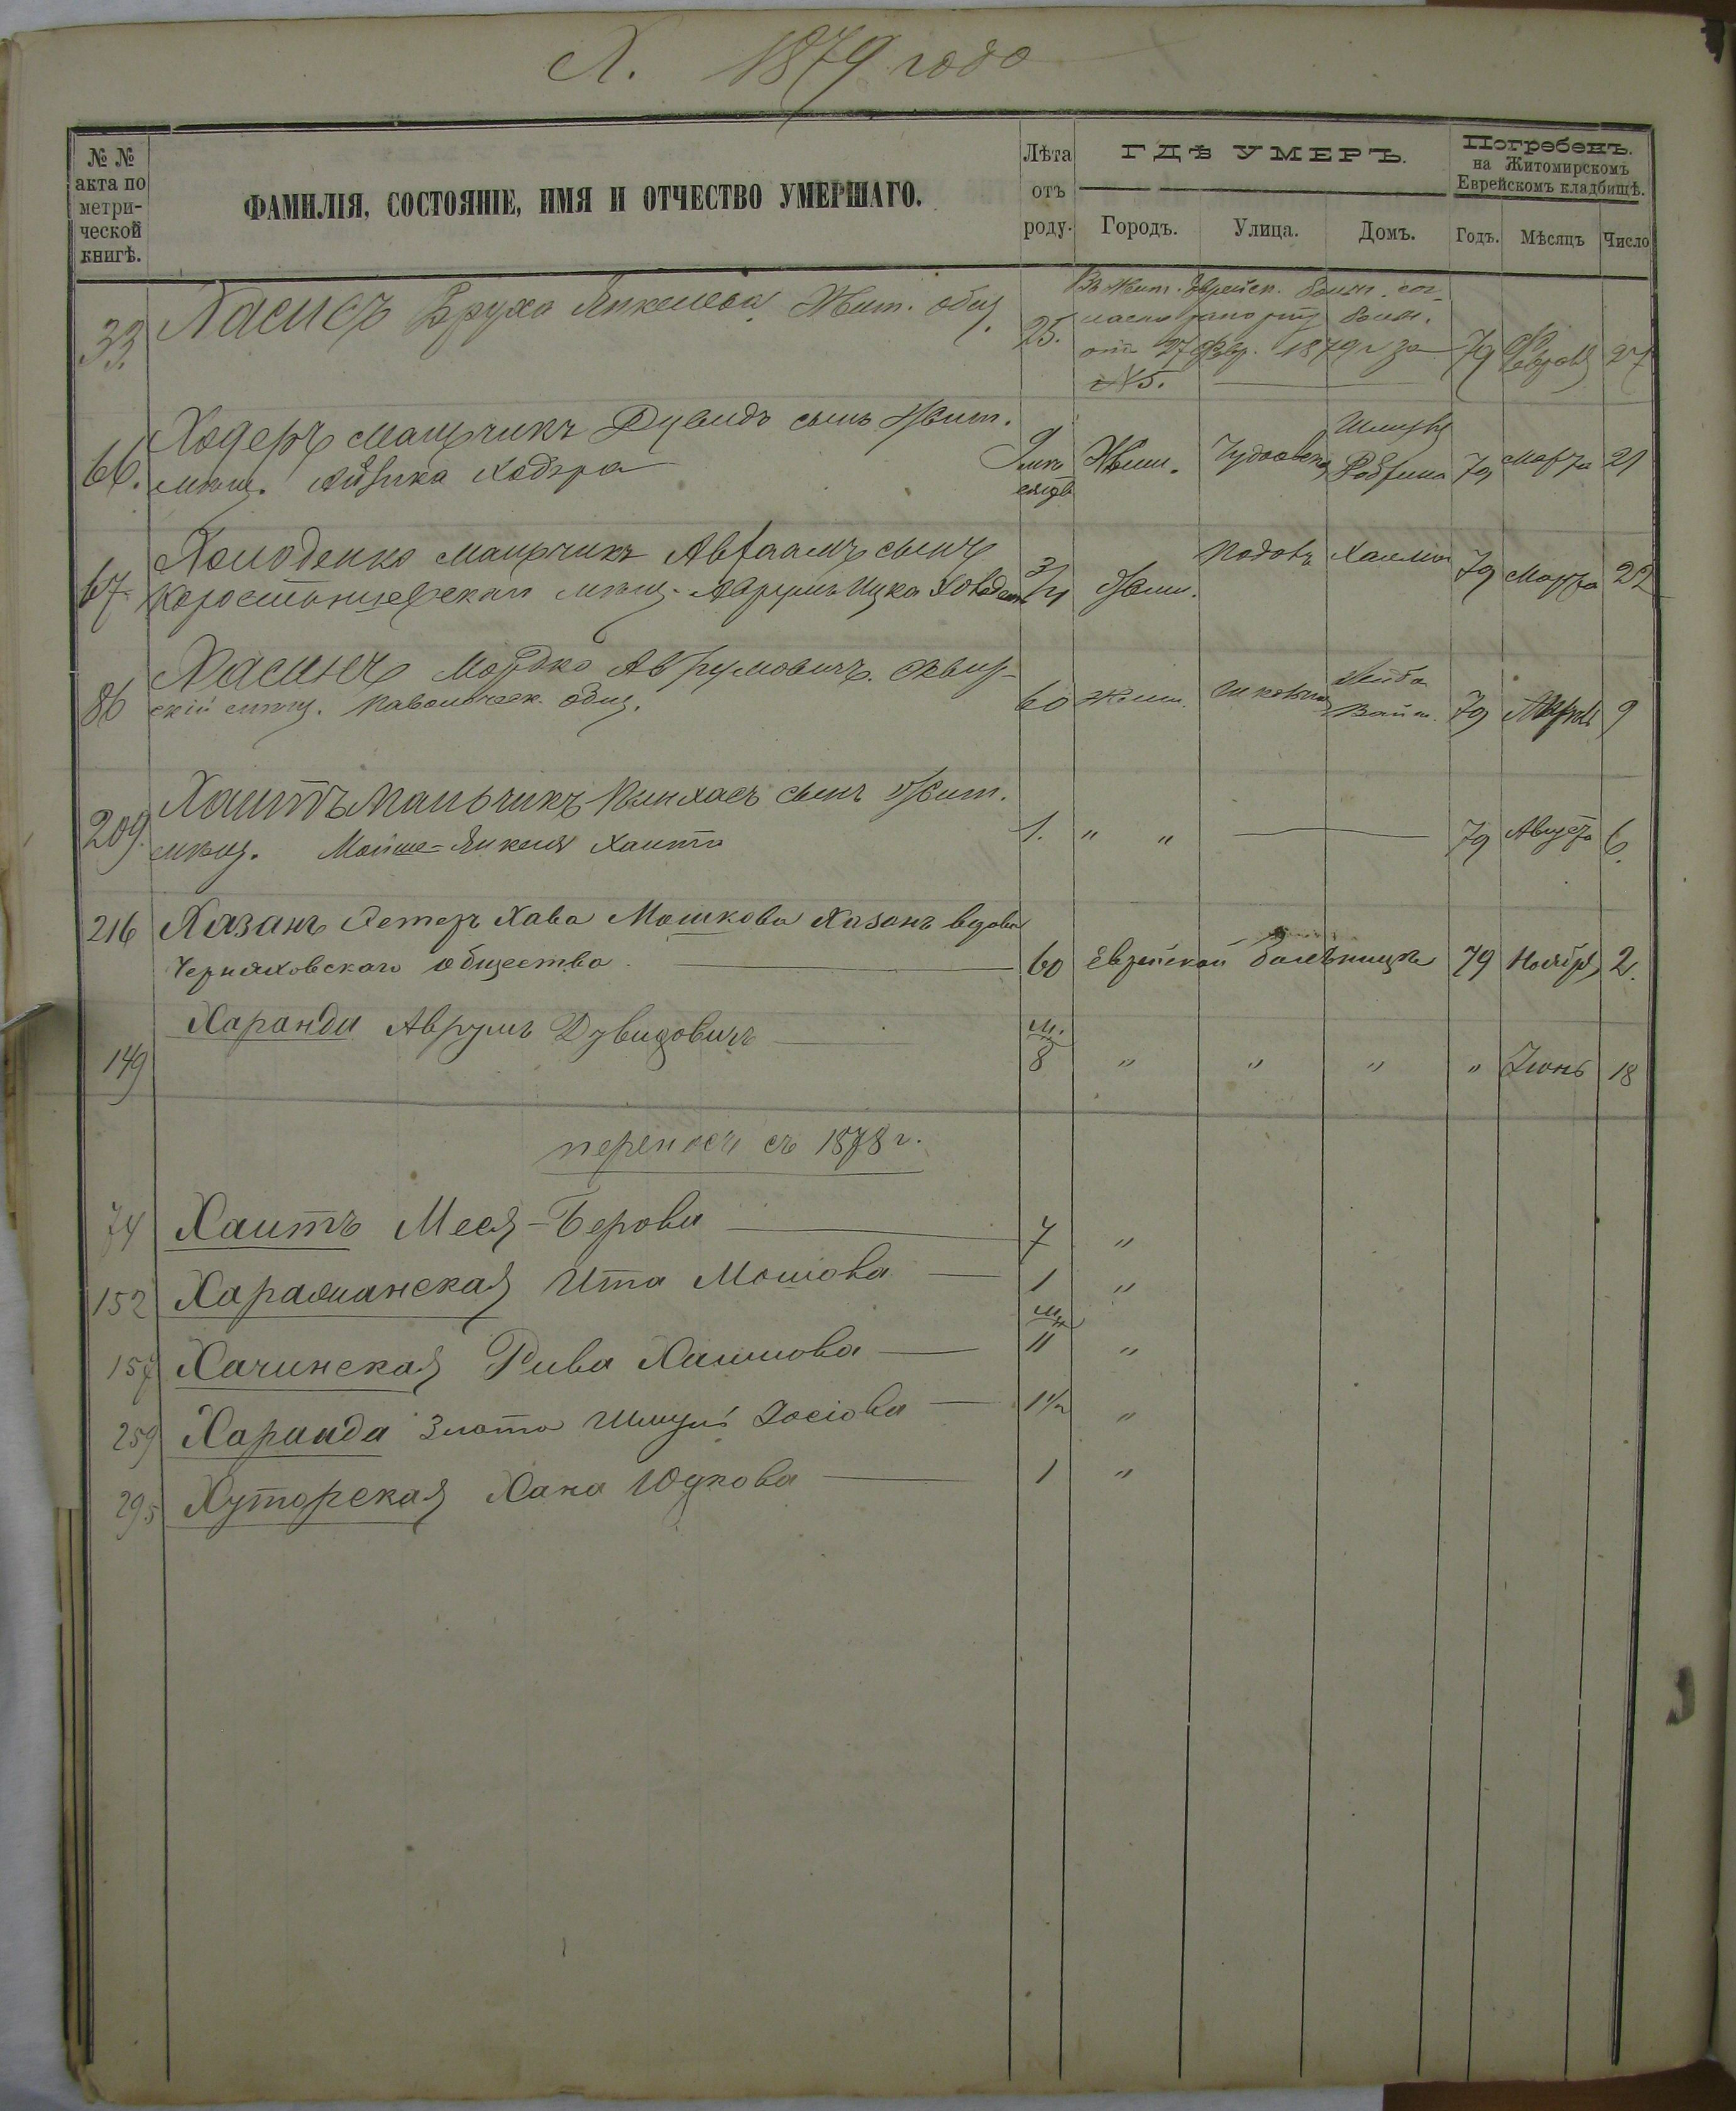 Х. 1879 года
№ № акта по метри-ческой книгѣ.
ФАМИЛІЯ, СОСТОЯНІЕ, ИМЯ И ОТЧЕСТВО УМЕРШАГО.
Лѣта отъ роду.
ГДѢ УМЕРЪ.
Городъ. Улица. Домъ.
Погребенъ.
на Житомирскомъ
Еврейскомъ кладбищѣ.
Годъ. Мѣсяцъ Число
33. Хасисъ Бруха Янкелева Жит. общ. 25. Въ Жит. Еврейск. больн. сог-
ласно рапорту больн.
отъ 27 Февр. 1879 г за 79 Февраля 27
№5.
66. Ходеръ мальчикъ Дувидъ сынъ Жит.
мѣщ. Айзика Ходера 9 Жит. Чудновская 79 Марта 21
67. Холоденко мальчикъ Авраамъ сынъ
Коростышевскаго мѣщ. 3/4 Жит. 79 Марта 22
86 Хасинъ Мордко Аврумовичъ. Сквир-
скій мѣщ. Паволочск. общ. 60 Жит. Лейба 79 Апрѣля 9
209. Хаитъ мальчикъ Пинхасъ сынъ Жит.
мѣщ. Мойше-Янкеля Хаита 1. " " 79 Августа 6.
216 Хазанъ Эстеръ Хава Мошкова Хазанъ вдова
Черняховскаго общества. 60 Еврейской больницѣ 79 Ноября 2.
149 Харанда Аврумъ Дувидовичъ м. 8 " " " " Іюнь 18
переносъ съ 1878 г.
74 Хаитъ Меся-Берова 7 "
152 Ита Мошова 1 "
157 Хачинская Рива Хаимова м. 11 "
259 Харанда Злата Шмуль Іосіова 1 1/2 "
295 Хуторская Хана Юдкова 1 "